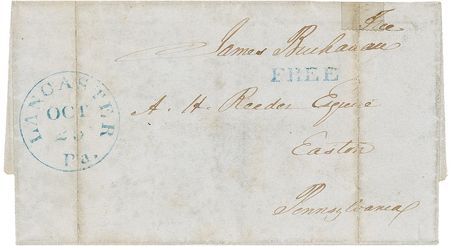 Free
James Buchanan
FREE
LANCASTER
OCT
25
Pa.
A. H. Reeder Esquire
Easton
Pennsylvania